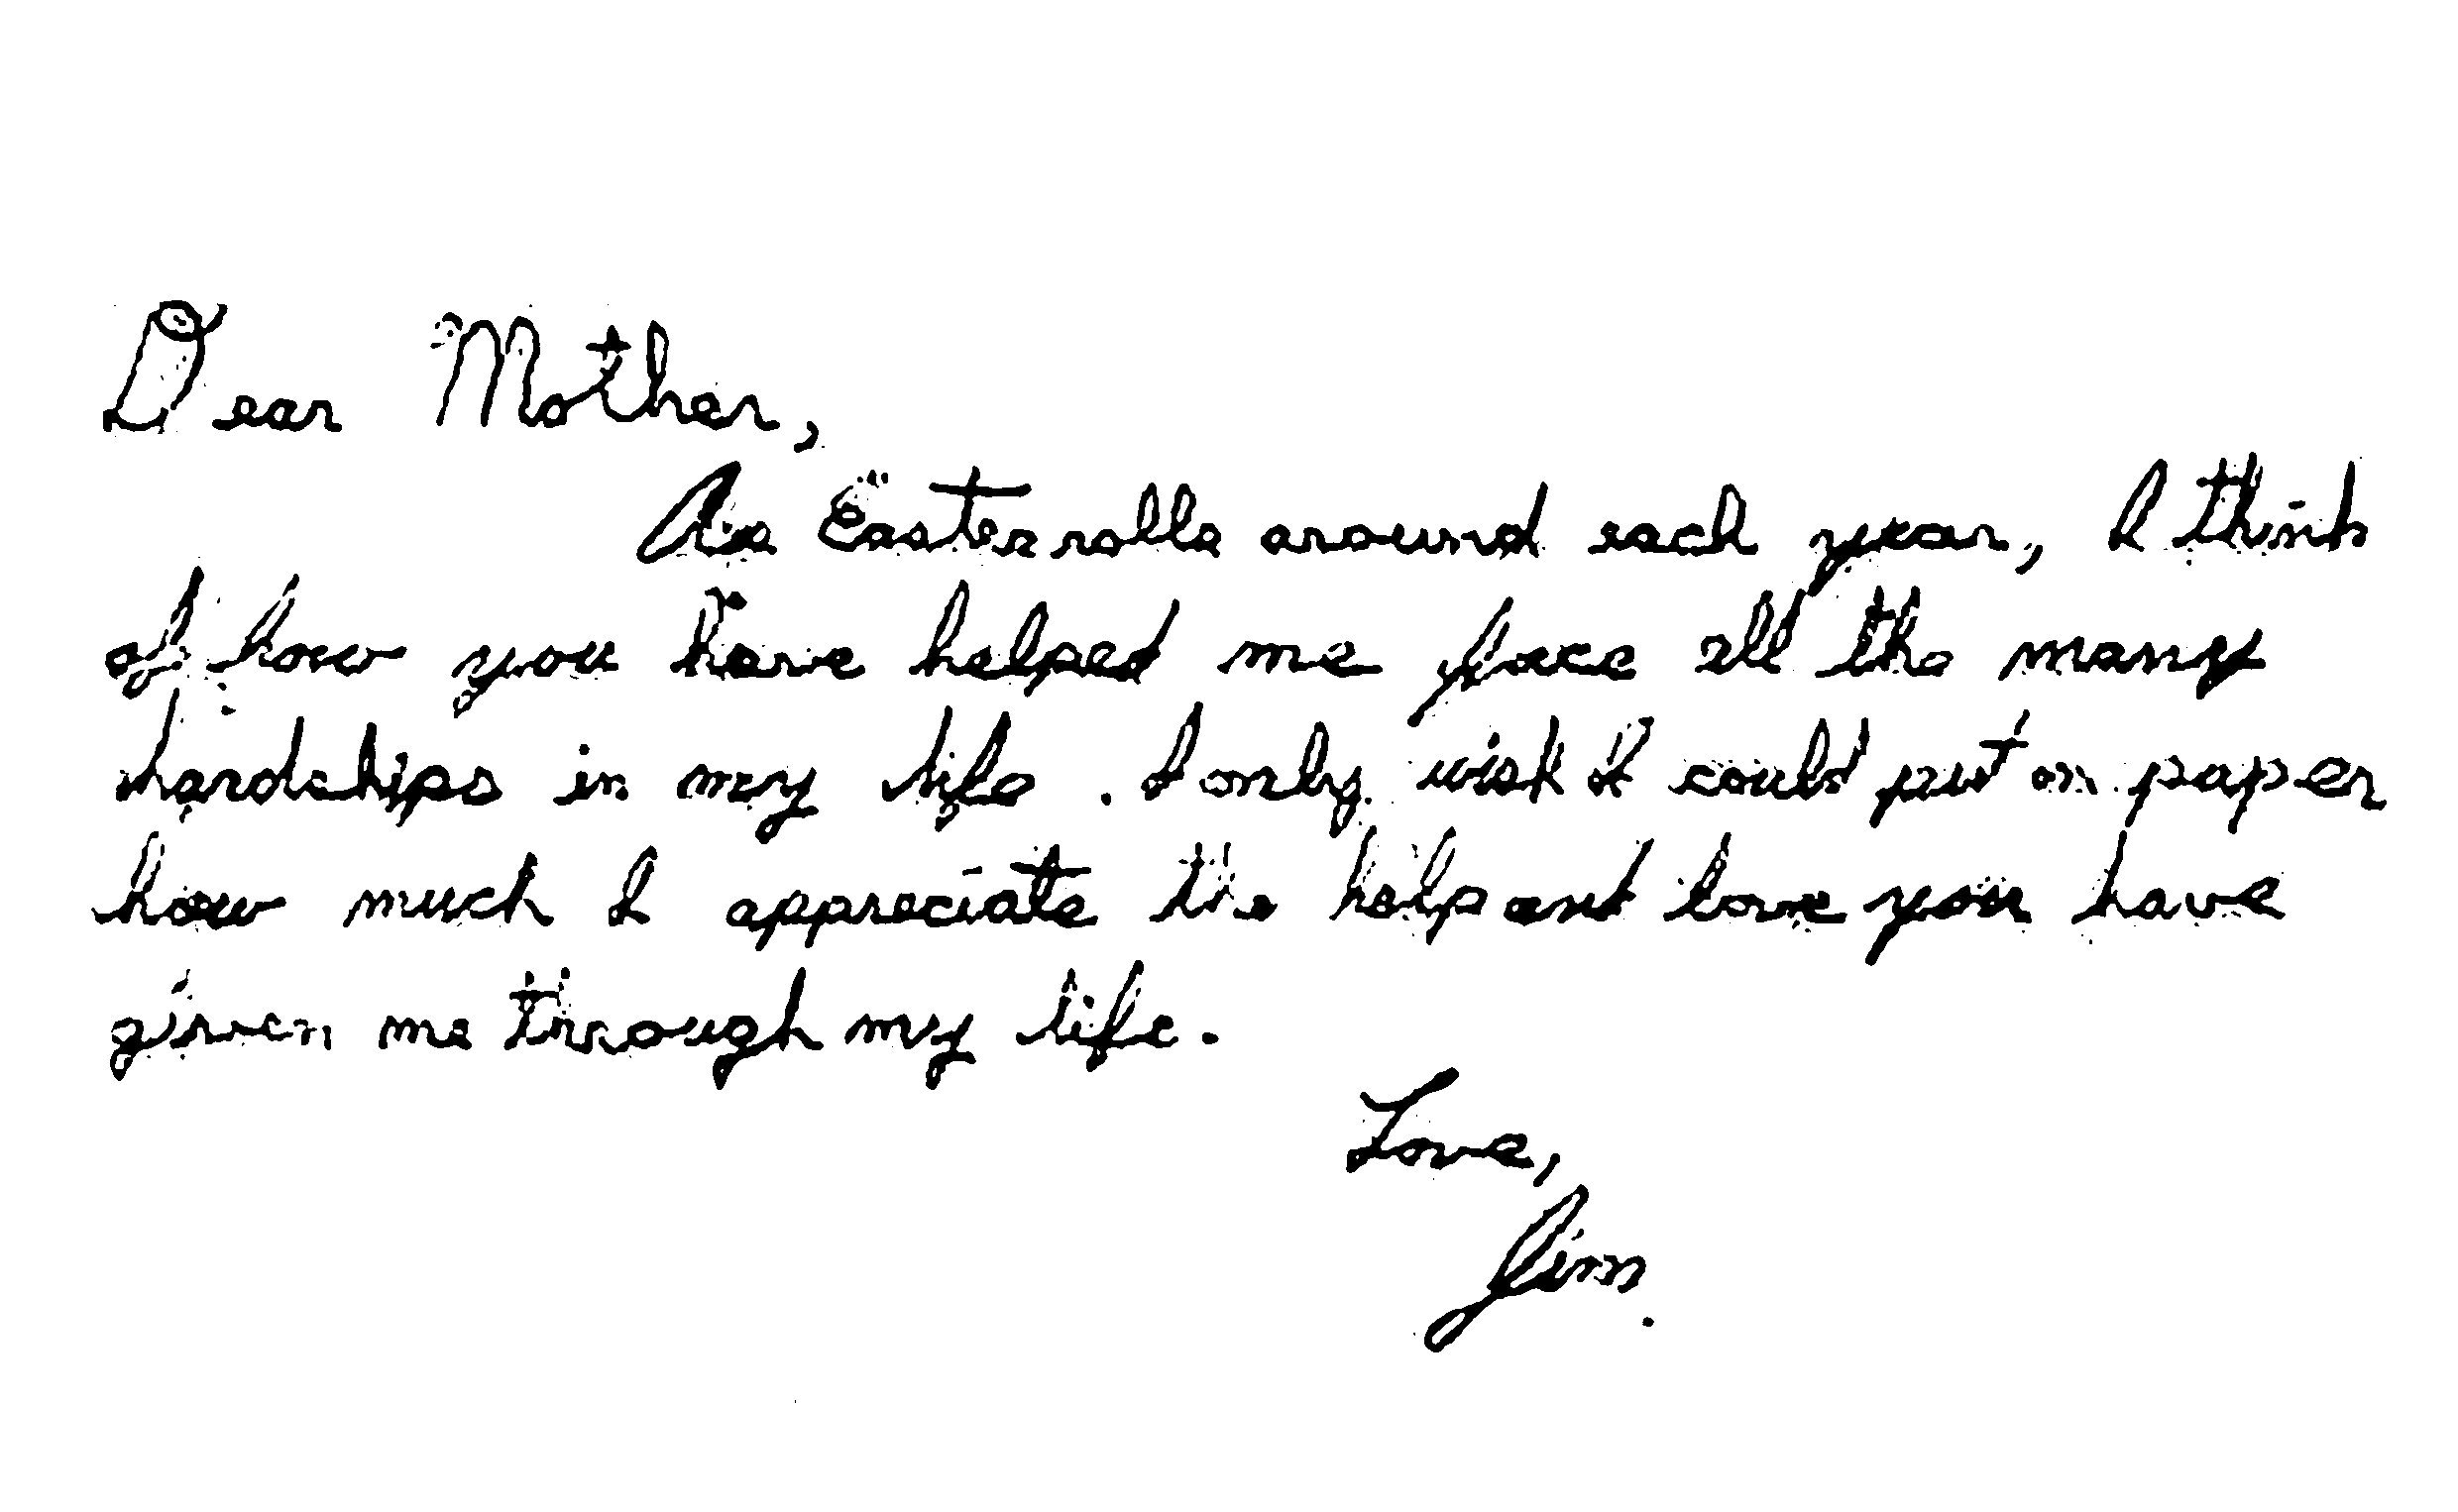 Dear Mother,
As Easter rolls around each year, I think
of how you have helped me face all the many
hardships in my life. I only wish I could put on paper
how much I appreciate the help and love you have
given me through my life.
Love,
Jim.